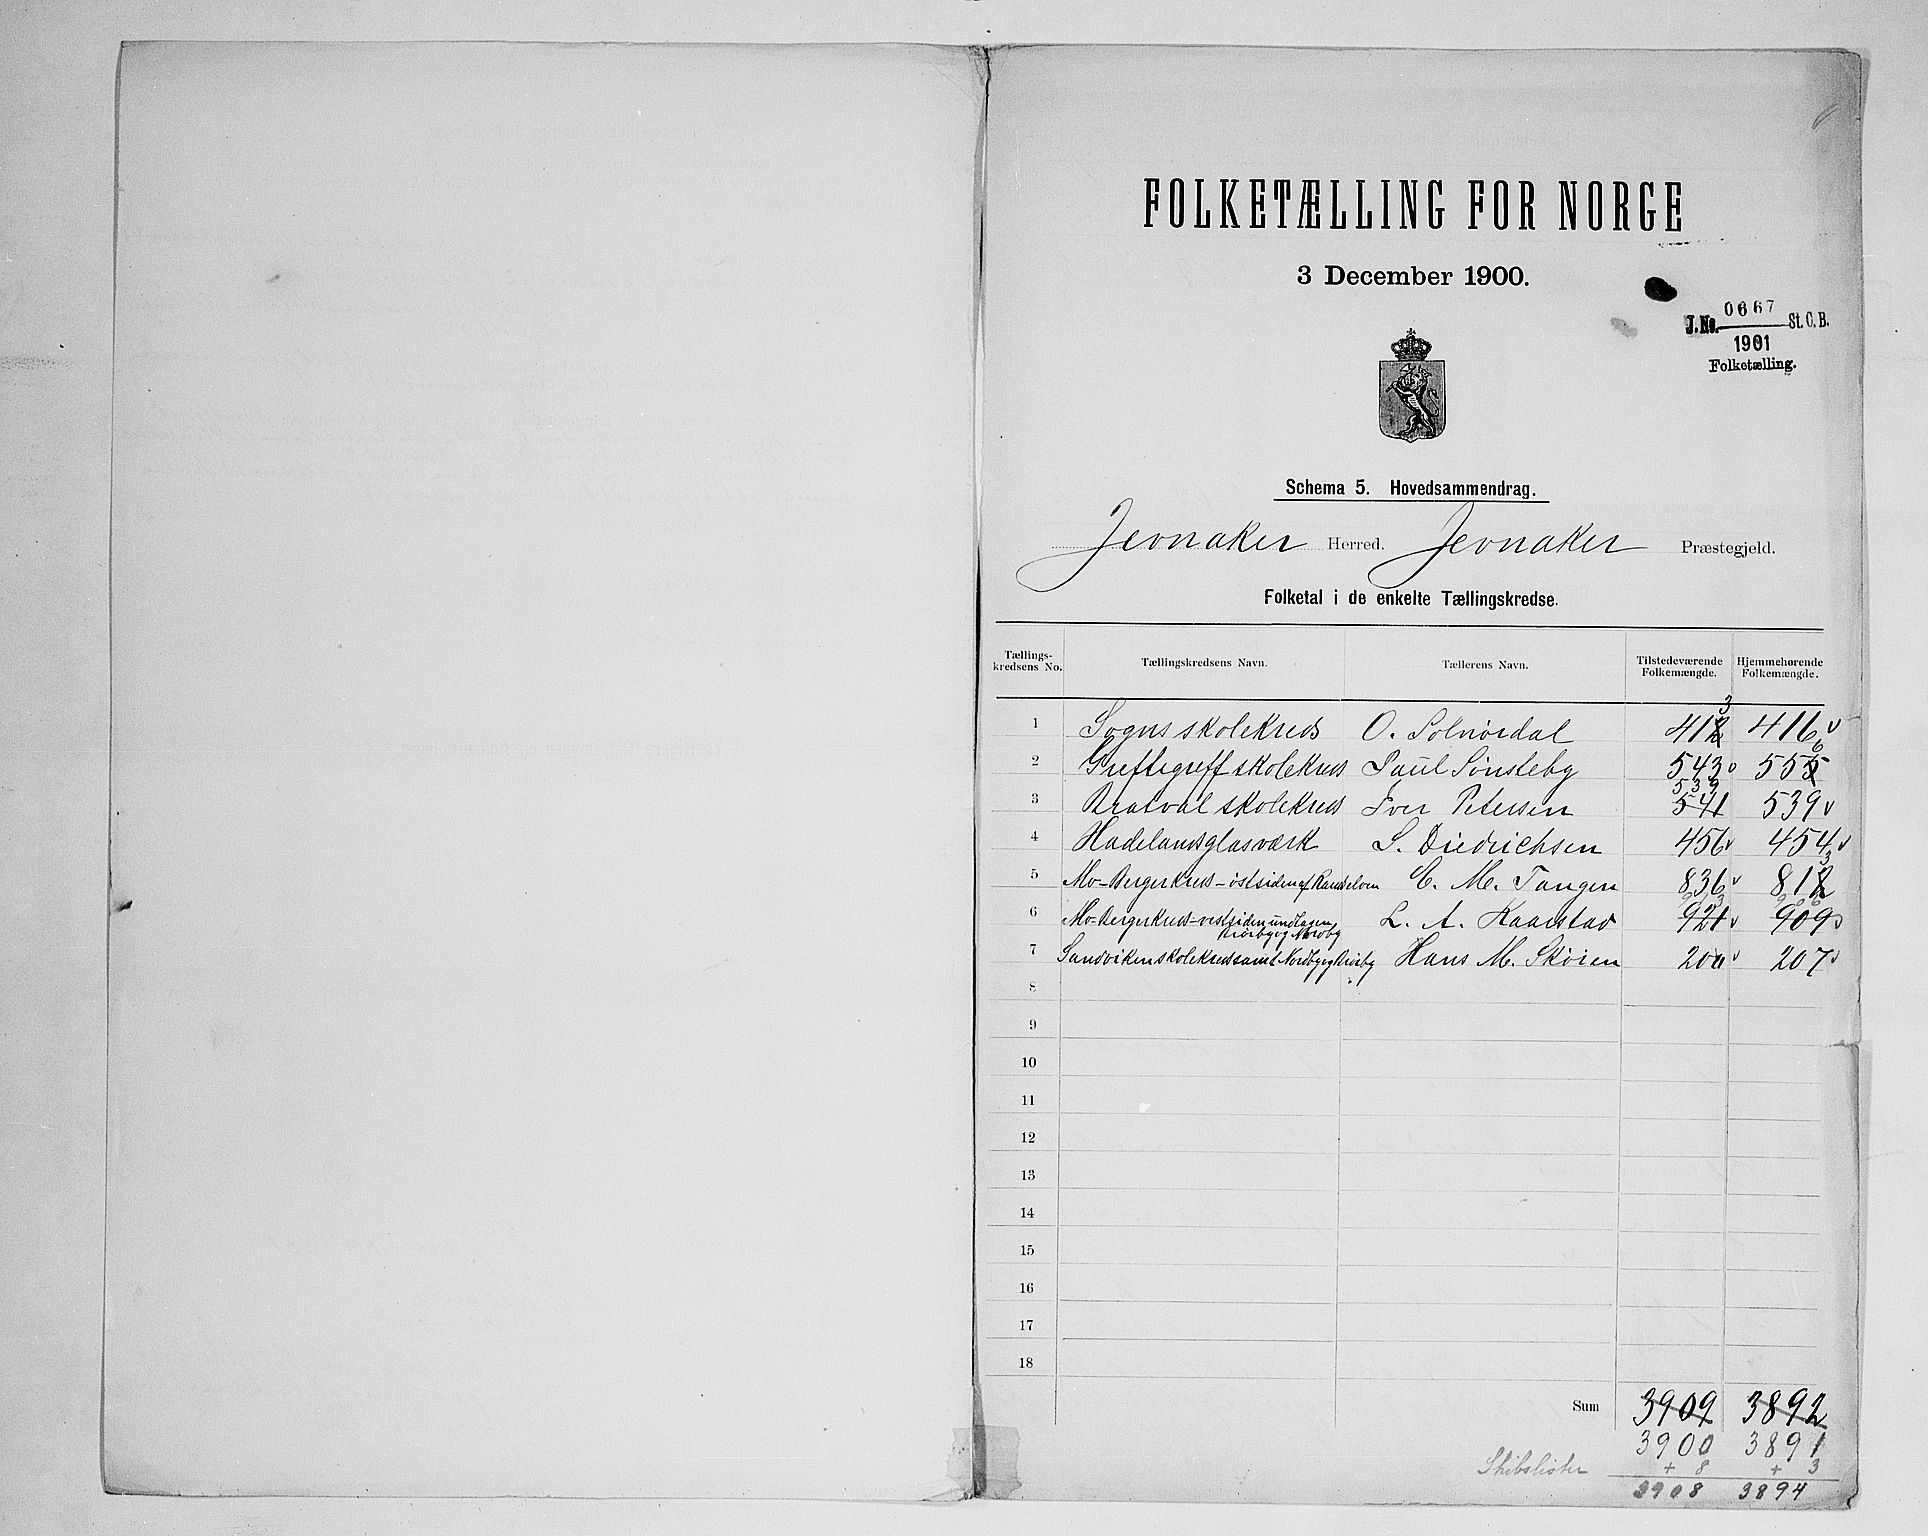 FOLKETÆLLING FOR NORGE
3 December 1900.
J. No. 0667 St. C. B.
1901
Folketælling.
Schema 5. Hovedsammendrag.
Jevnaker Herred. Jevnaker Præstegjeld.
Folketal i de enkelte Tællingskredse.
Tællings-kredsens No. Tællingskredsens Navn. Tællerens Navn. Tilstedeværende Folkemængde. Hjemmehørende Folkemængde.
3
1 Sogns skolekreds O. Solnørdal 412 416
6
2 Greftegreff skolekreds Paul Sønsteby 543 555
539
3 Bratval skolekreds Iver Petersen 541 539
4 Hadelandsglasværk S. Diedrichsen 456 454
3
5 Mo-Bergerkreds-østsiden af Randselven C. M. Tangen 836 812
913 906
6 Mo-Bergerkreds-vestsiden undtagen L. A. Kaarstad 921 909
Prørby og Nordby
7 Sandviken skolekreds samt Nordby og Prørby Hans M. Skøien 200 207
8
9
10
11
12
13
14
15
16
17
18
Sum 3909 3892
3900 3891
Skibslister + 8 + 3
3908 3894